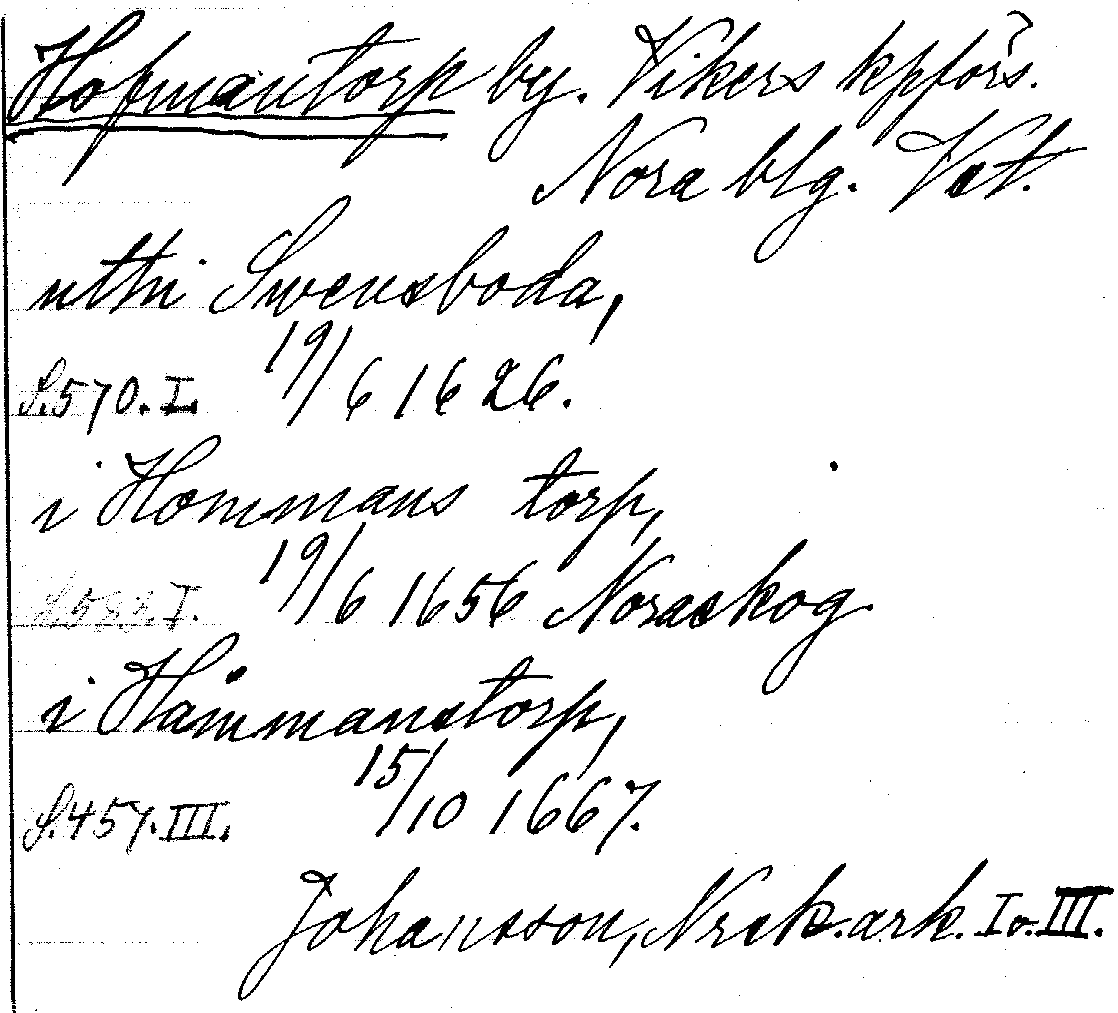 Hofmantorp by. Vikers kpförs.
Nora blg. Vst.
uthi Swensboda,
S.570.I. 19/6 1626.
i Hommans torp,
S.583.I. 19/6 1656 Noraskog
i Håmmanstorp,
S.457.III. 15/10 1667.
Johansson, Nrsk.ark. I o. III.